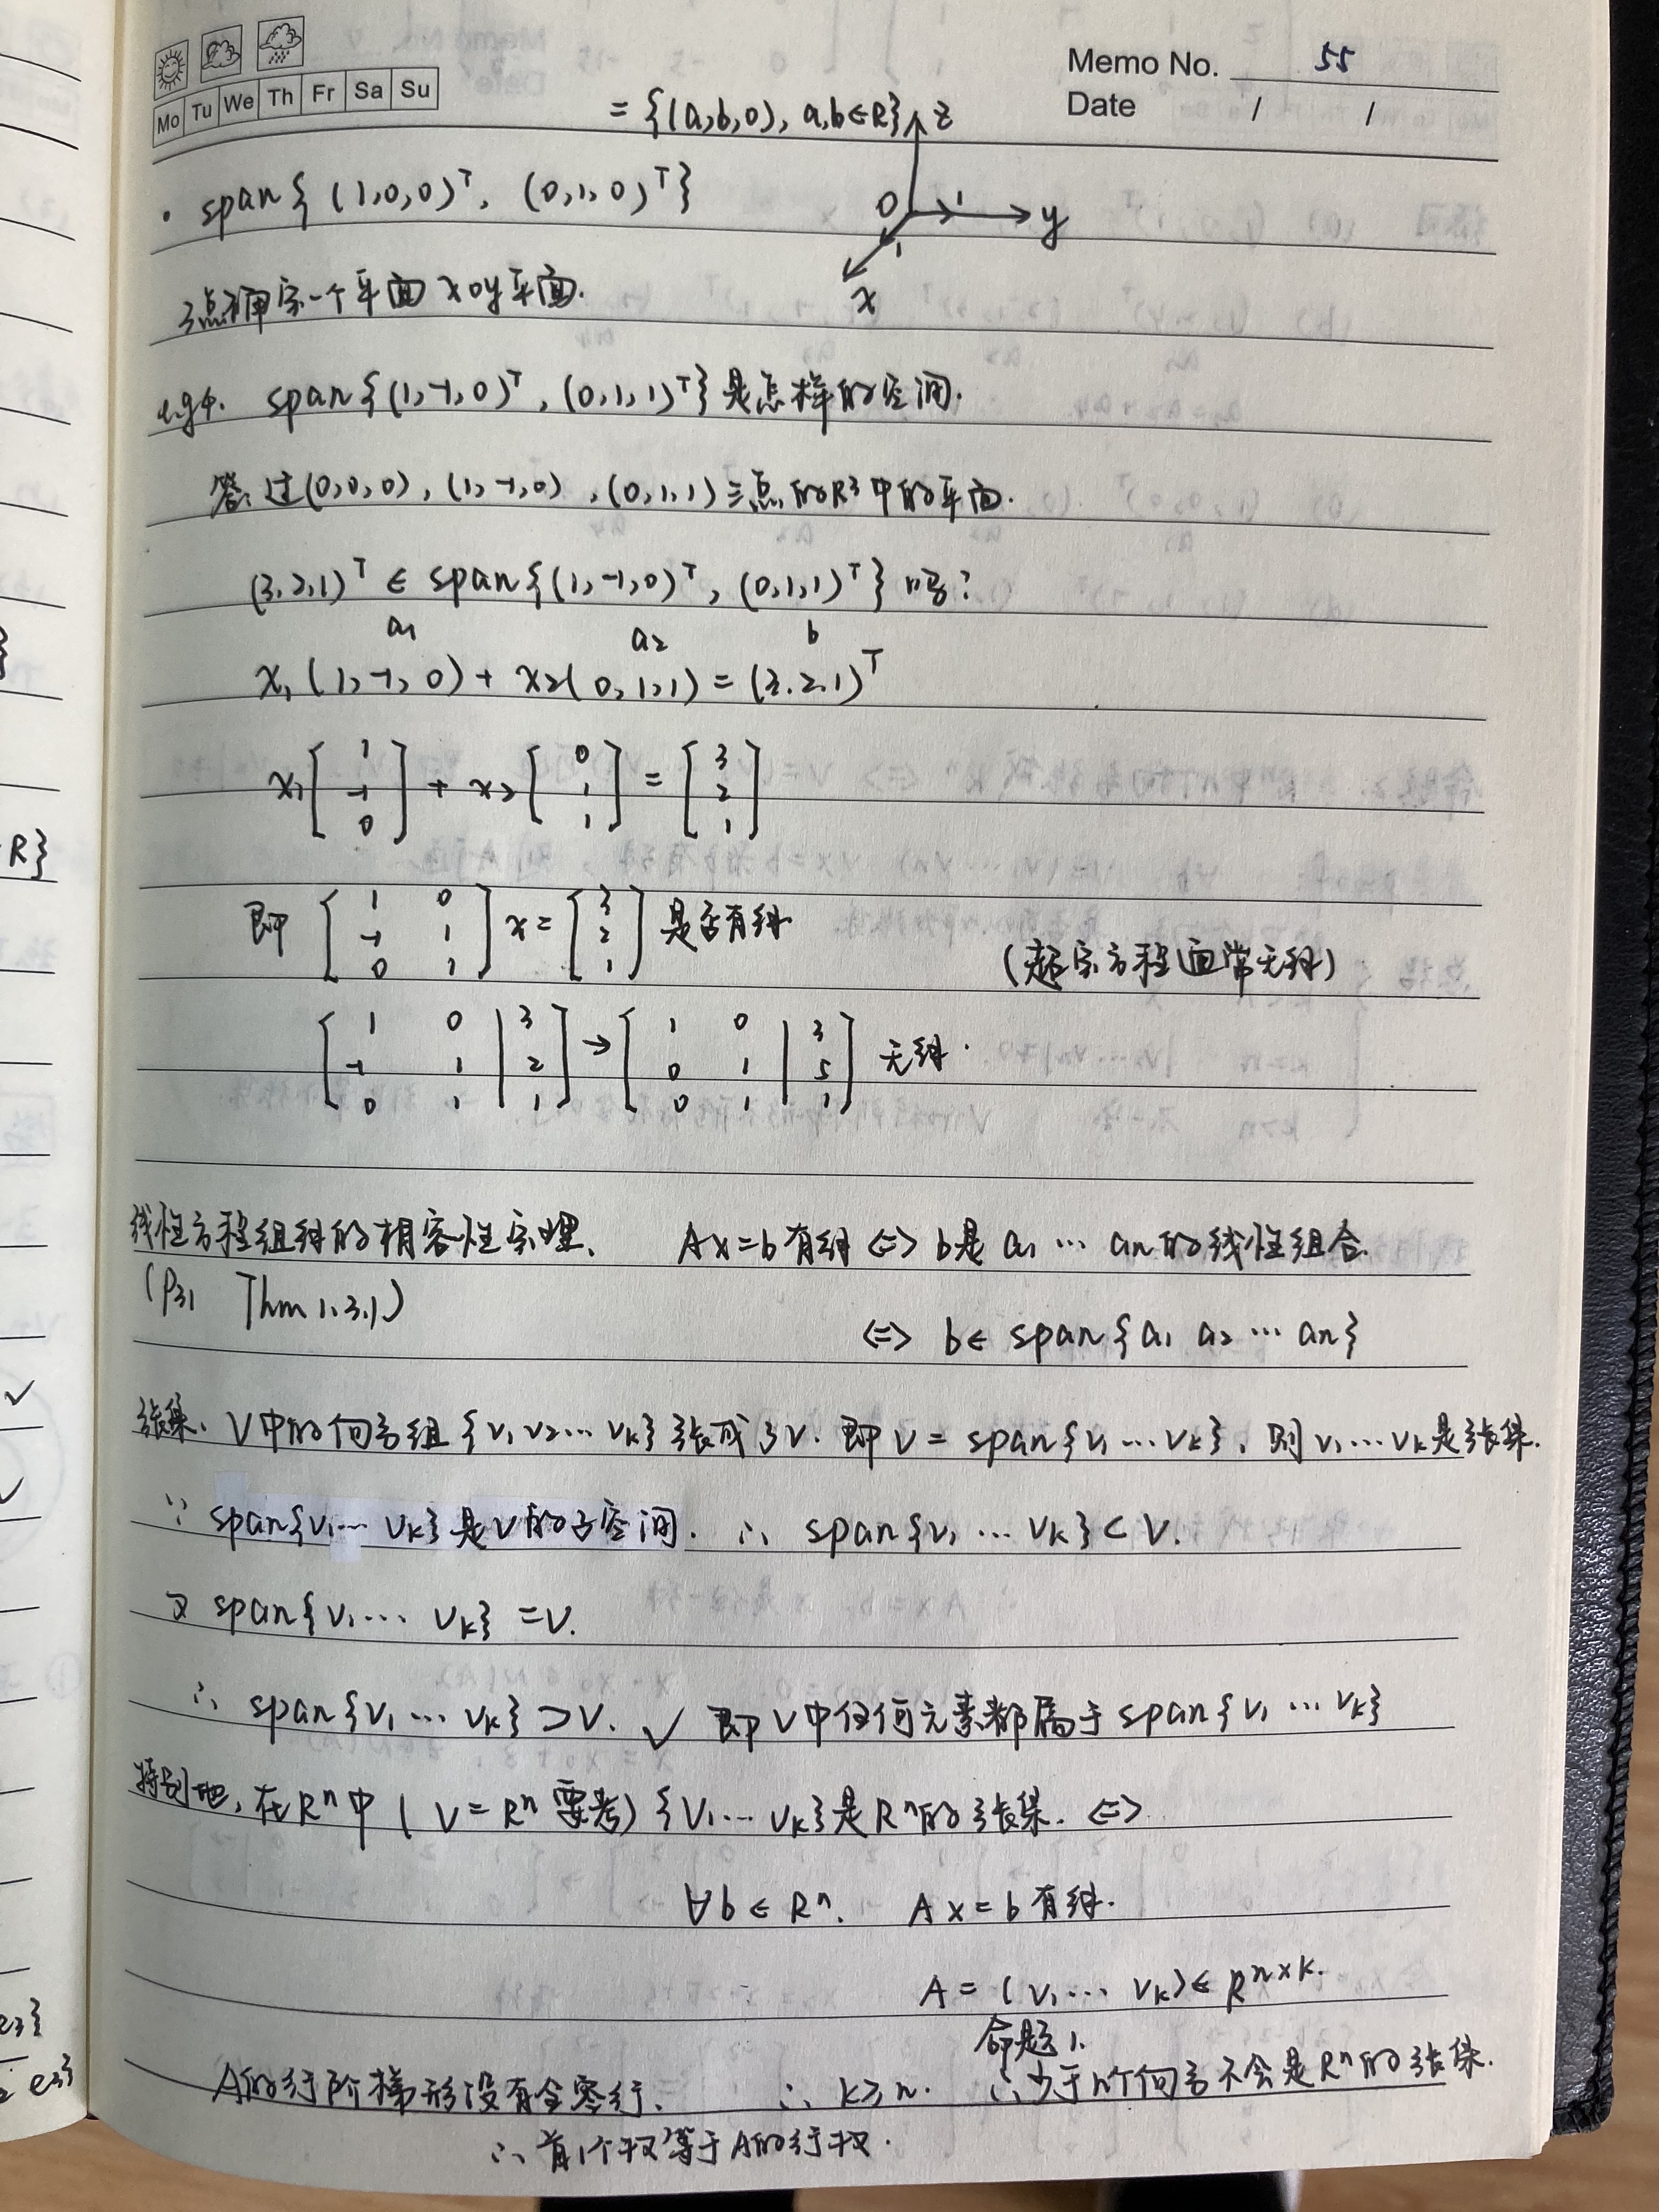 Mo Tu We Th Fr Sa Su
Memo No. 55
Date / /
= {(a,b,0), a,b∈R}
z
0 1 y
1
x
· span{ (1,0,0)ᵀ, (0,1,0)ᵀ}
3点确定一个平面 xoy平面.
eg4. span{(1,-1,0)ᵀ, (0,1,1)ᵀ}是怎样的空间.
答: 过(0,0,0), (1,-1,0), (0,1,1)三点的R³中的平面.
(3,2,1)ᵀ ∈ span{(1,-1,0)ᵀ, (0,1,1)ᵀ} 吗?
a₁ a₂ b
x₁(1,-1,0) + x₂(0,1,1) = (3.2.1)ᵀ
x₁ [1 -1 0] + x₂ [0 1 1] = [3 2 1]
即 [1 0; -1 1; 0 1] x = [3 2 1] 是否有解
(超定方程通常无解)
[1 0 | 3; -1 1 | 2; 0 1 | 1] → [1 0 | 3; 0 1 | 5; 0 1 | 1] 无解.
线性方程组解的相容性定理. Ax=b有解 ⇔ b是 a₁ … aₙ的线性组合.
(P31 Thm 1.3.1)
⇔ b∈ span{a₁ a₂ … aₙ}
张集. V中的向量组 {v₁ v₂… vₖ} 张成了V. 即 V = span{v₁ … vₖ}, 则 v₁ … vₖ是张集.
∵ span{v₁… vₖ}是V的子空间. ∴ span{v₁ … vₖ} ⊂ V.
又 span{v₁ … vₖ} = V.
∴ span{v₁ … vₖ} ⊃ V. ✓ 即V中任何元素都属于 span{v₁ … vₖ}
特别地, 在Rⁿ中 ( V=Rⁿ 要考) {v₁… vₖ}是Rⁿ的张集. ⇔
∀b∈Rⁿ. Ax=b有解.
A = (v₁ … vₖ)∈Rⁿˣᵏ.
命题1.
A的行阶梯形没有全零行. ∴ k≥n. ∴少于n个向量不会是Rⁿ的张集.
∴ 首1个数等于A的行数.
R}
✓
e₃}
e₃}